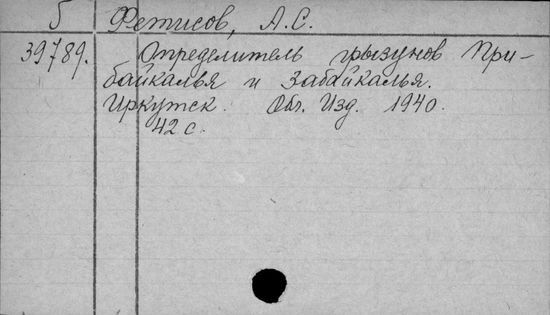 Б Фетисов, А.С.
39789. Определитель грызунов При-
байкалья и Забайкалья.
Иркутск. Обл. Изд. 1940.
42 с.